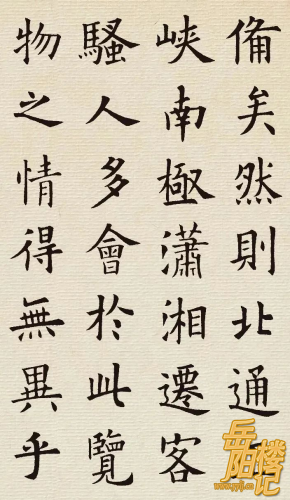 備矣然則北通
峽南極瀟湘遷客
騷人多會於此覽
物之情得無異乎
岳阳楼记